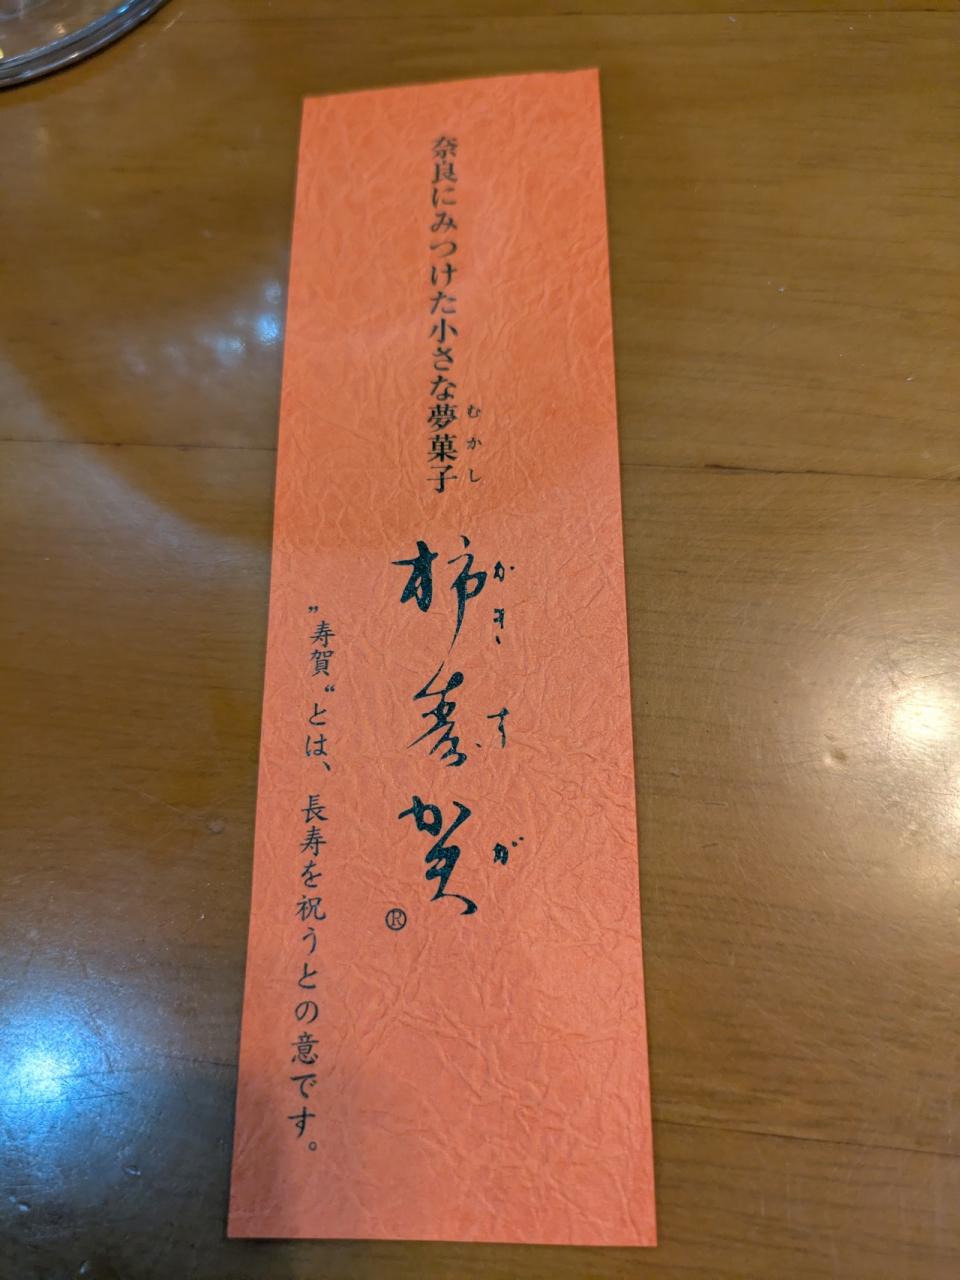 奈良にみつけた小さな夢菓子
むかし
柿寿賀
かきすが
®
”寿賀“とは、長寿を祝うとの意です。